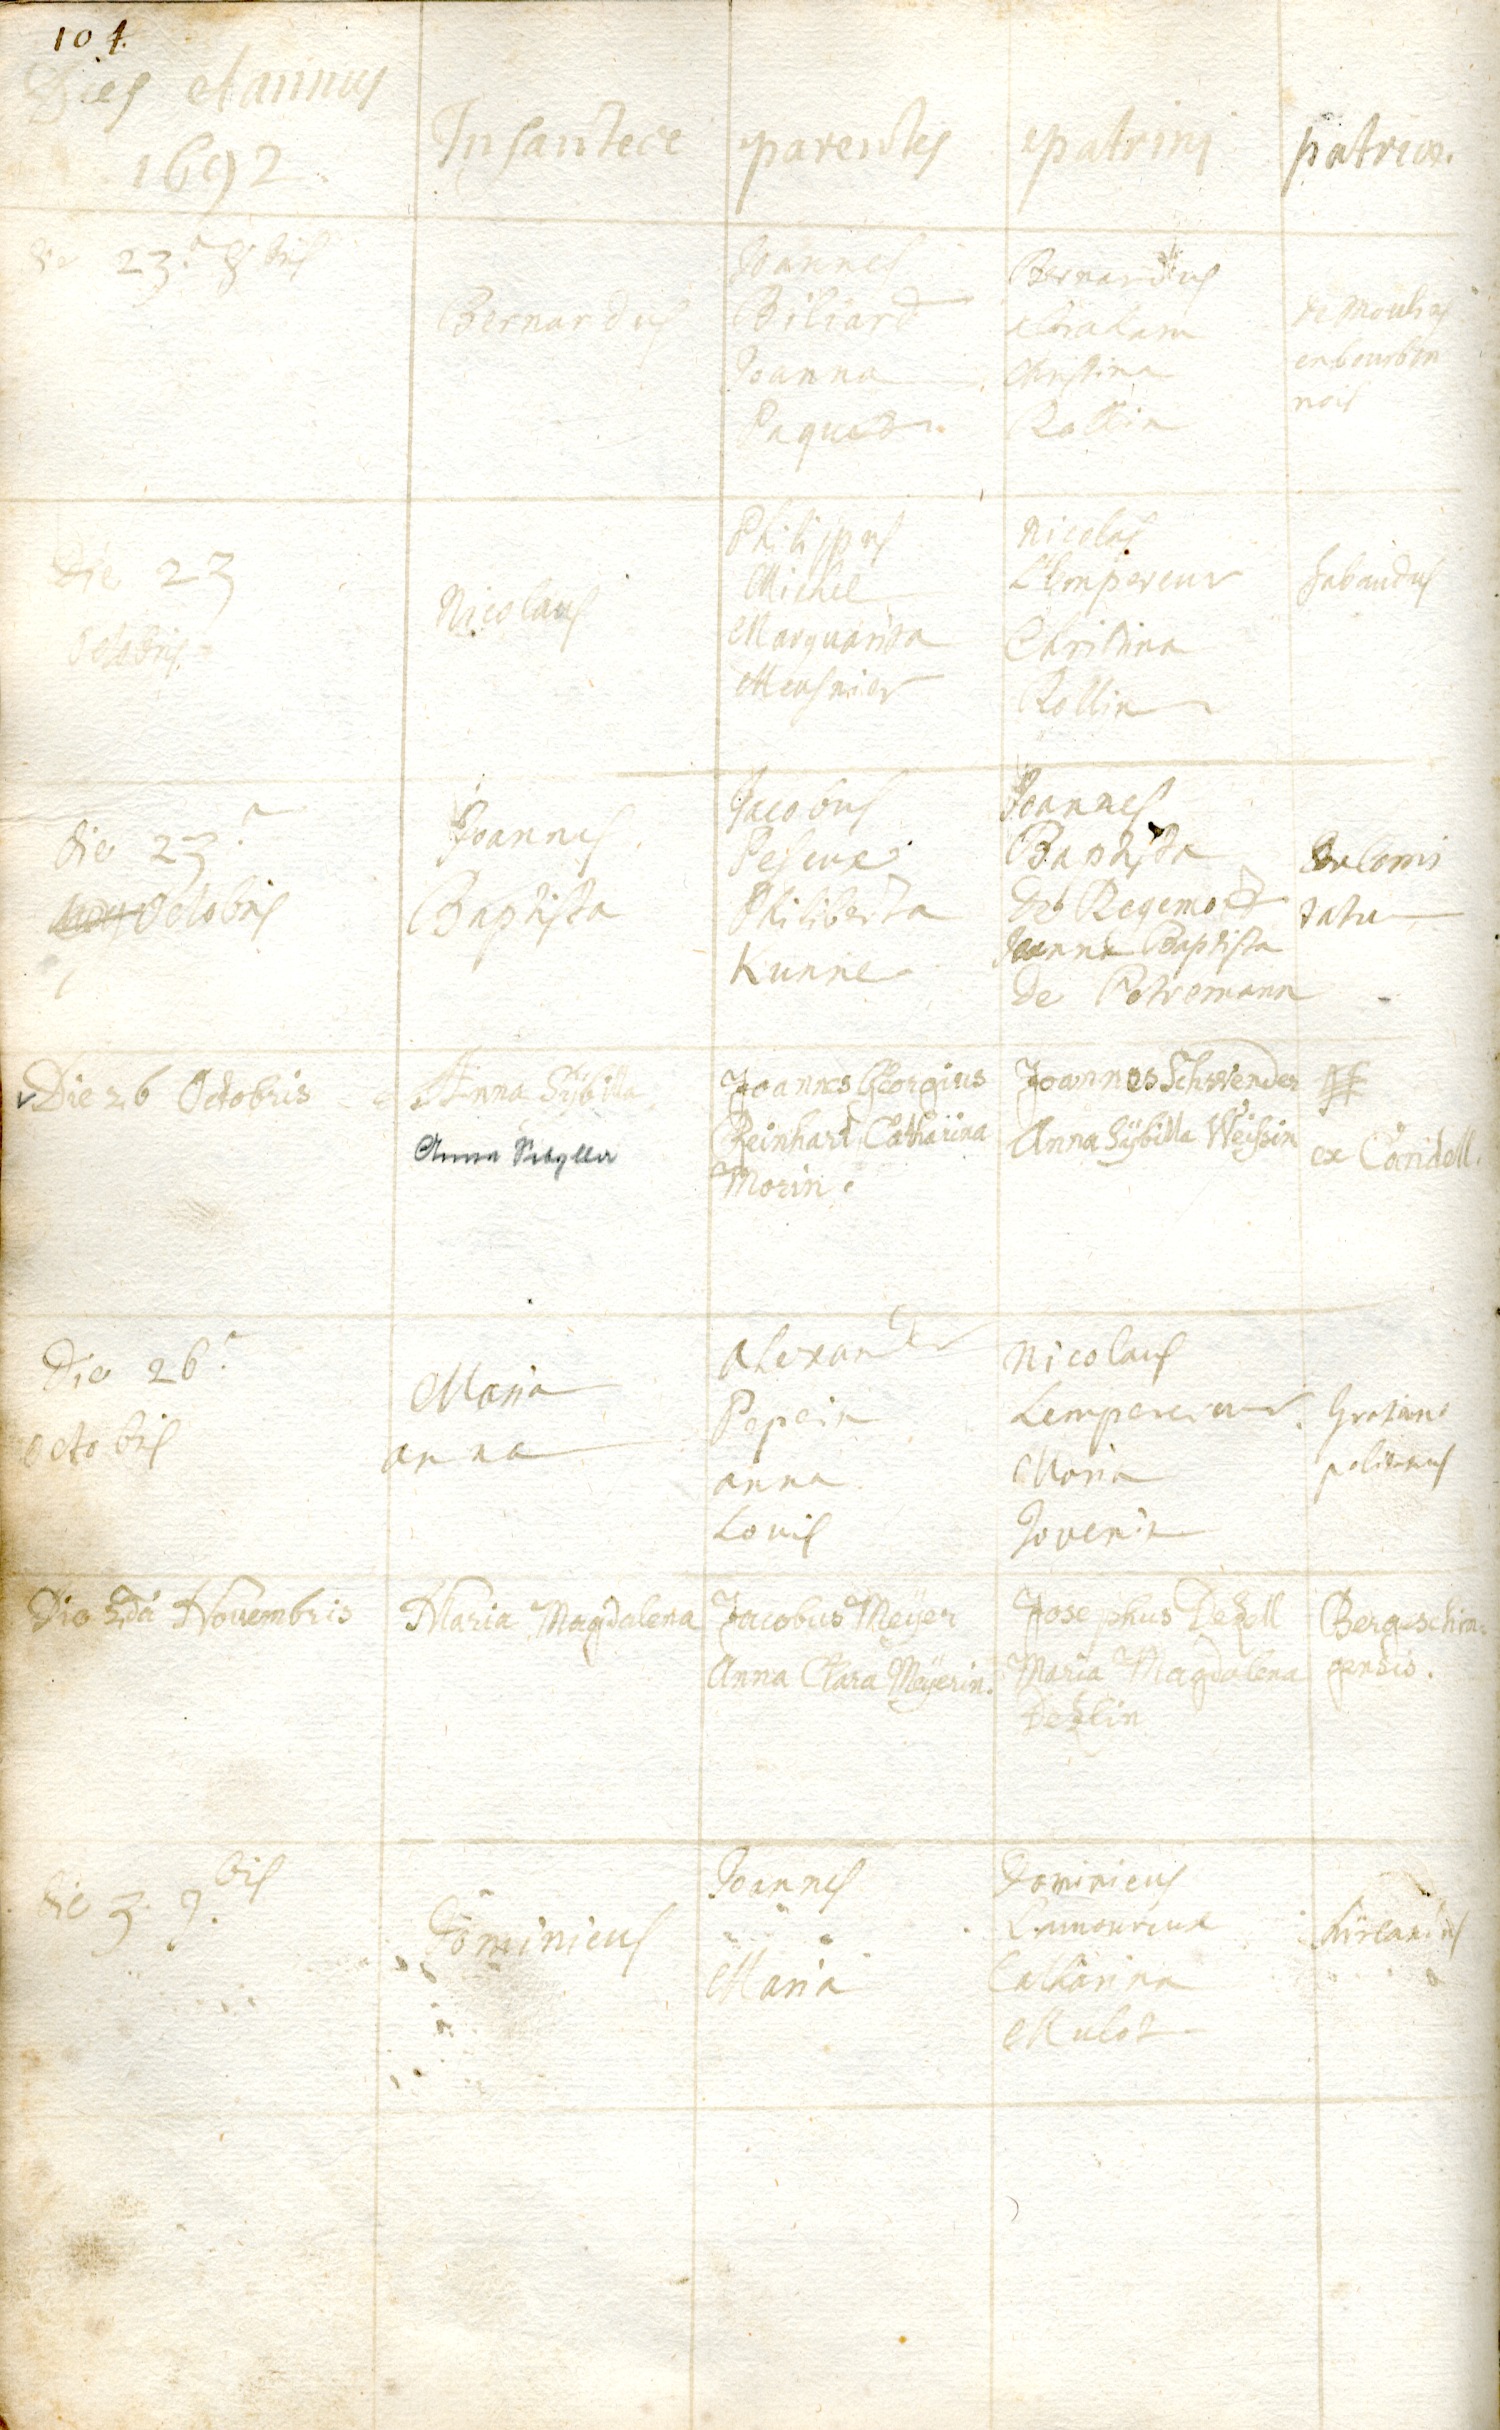 104.
Dies et annus
1692
Infantes
parentes
patrini
patria.
die 23.a 8 bris
Bernardus
Joannes
Biliard
Joanna
Paquet
Bernardus
Abraham
Christina
Rollin
de Moulins
en bourbon
nois
Die 23
Octobris
Nicolaus
Philippus
Michel
Marguarita
Meusnier
Nicolas
L'Empereur
Christina
Rollin
Sabaudus
die 23.a
Octobris
Joannes
Baptista
Jacobus
Peseux
Philiberta
Kunne
Joannes
Baptista
de Regemort
Joanna Baptista
de Petremann
Comi
tatu
Die 26 Octobris
Anna Sÿbilla
Anna Sibylla
Joannes Georgius
Reinhart Catharina
Morin.
Joannes Schwender
Anna Sÿbilla Weissin
ex
Die 26.a
octobris
Maria
anna
Alexander
Pepein
anna
Louis
Nicolaus
Lempereur
Maria
Jovenin
Gratiano
politanus
Die 2da Novembris
Maria Magdalena
Jacobus Meÿer
Anna Clara Meÿerin.
Josephus Dezell
Maria Magdalena
Dezlin
Bergeschin
gensis.
die 3. 9.bris
Dominicus
Joannes
Maria
Dominicus
Lamoureux
Catharina
Mulot